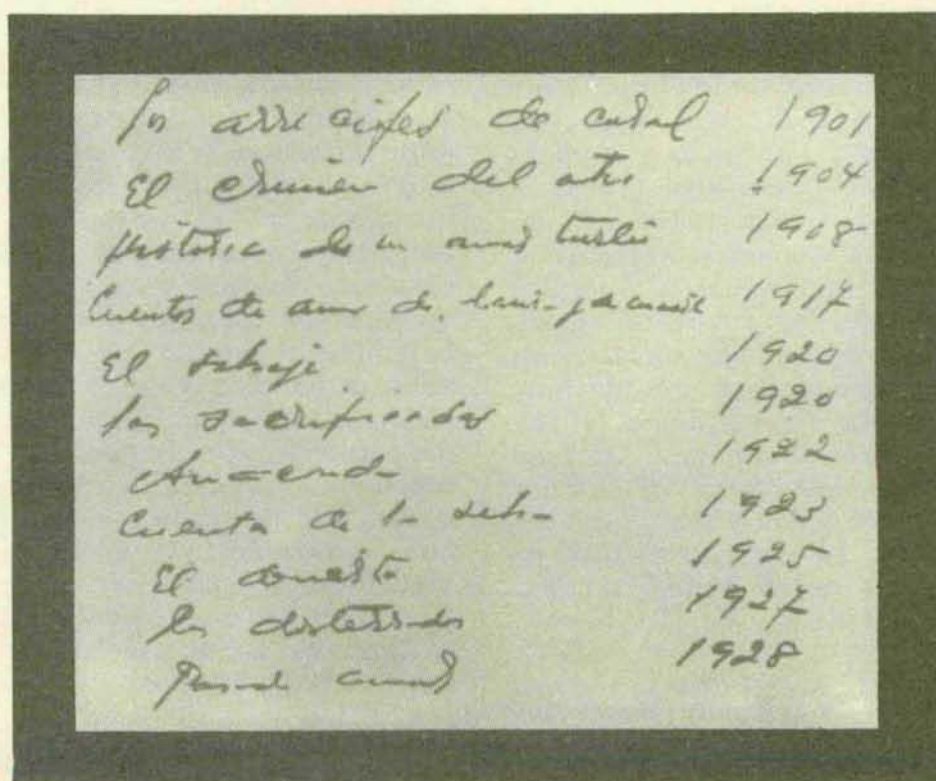 Los arrecifes de coral 1901
El crimen del otro 1904
Historia de un amor turbio 1908
Cuentos de amor de locura y de muerte 1917
El salvaje 1920
Las sacrificadas 1920
Anaconda 1922
Cuentos de la selva 1923
El desierto 1925
Los desterrados 1927
Pasado amor 1928